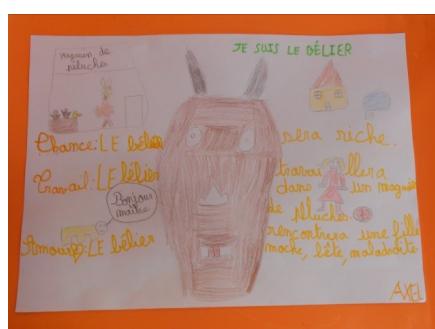 magasin de
peluches
JE SUIS LE BÉLIER
Chance: LE bélier sera riche.
Travail: LE bélier travaillera
dans un magasin
de peluches.
Bonjour
maître
Amour: LE bélier rencontrera une fille
moche, bête, maladroite.
AXEL